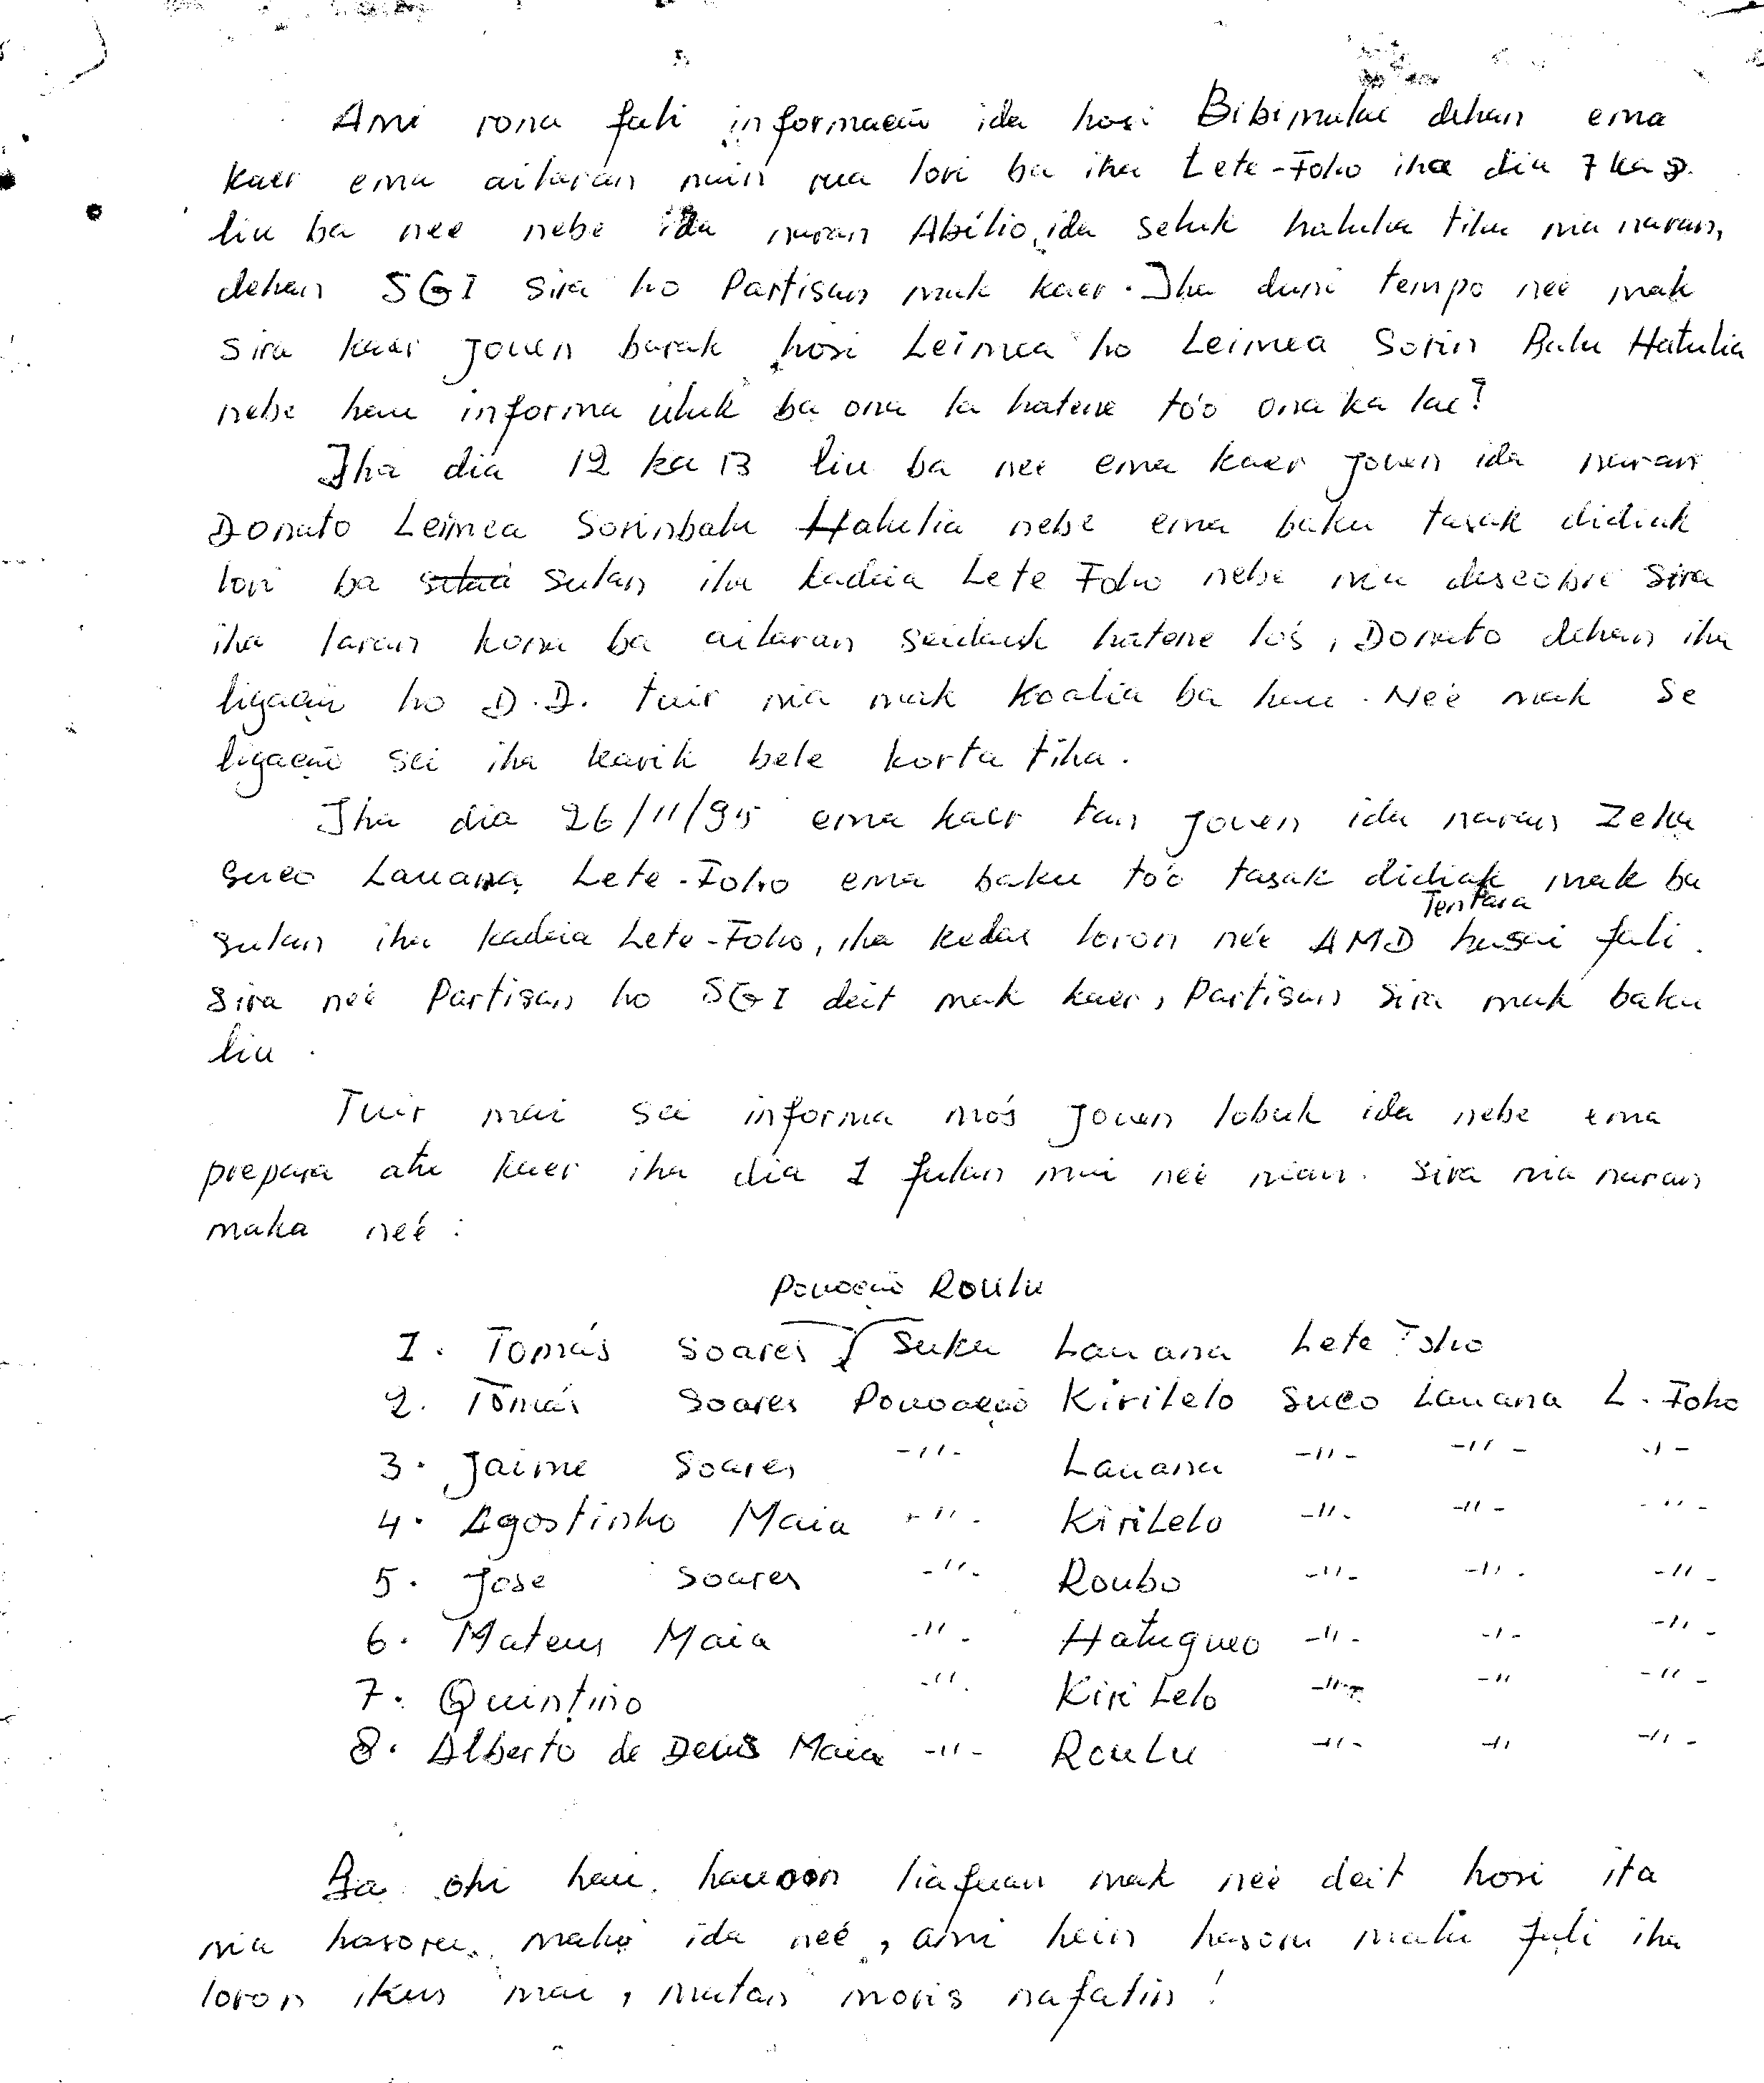 Ami rona fali informação ida hosi Bibimulac dehan ema
kaer ema ailaran nain rua lori ba iha Lete-Foho iha dia 7 ka 8
liu ba neé nebe ida naran Abílio, ida seluk haluha tiha nia naran,
dehan SGI sira ho Partisan mak kaer. Iha duni tempo neé mak
sira kaer joven barak hosi Leimea ho Leimea Sorin Balu Hatulia
nebe hau informa uluk ba ona la hatene to'o ona ka lae?
Iha dia 12 ka 13 liu ba neé ema kaer joven ida naran
Donato Leimea Sorinbalu Hatulia nebe ema baku tasak didiak
lori ba sulan iha kadeia Lete Foho nebe nia descobre sira
iha laran kona ba ailaran seidauk hatene lo's, Donato dehan iha
ligação ho D.D. tuir nia mak koalia ba hau. Neé mak se
ligação sei iha karik bele korta tiha.
Iha dia 26/11/95 ema kaer tan joven ida naran Zeka
suco Lauana Lete-Foho ema baku to'o tasak didiak mak ba
Tentara
sulan iha kadeia Lete-Foho, iha kedas loron neé AMD husai fali.
Sira neé Partisan ho SGI deit mak kaer, Partisan sira mak baku
liu.
Tuir mai sei informa mo's joven lobuk ida nebe ema
prepara atu kaer iha dia 1 fulan mai neé nian. Sira nia naran
maka neé:
Povoação Roulu
1. Tomás Soares Suku Lauana Lete Foho
2. Tomás Soares Povoação Kirilelo Suco Lauana L. Foho
3. Jaime Soares -"- Lauana -"- -"- -"-
4. Agostinho Maia -"- Kirilelo -"- -"- -"-
5. Jose Soares -"- Roubo -"- -"- -"-
6. Mateus Maia -"- Hatugueo -"- -"- -"-
7. Quintino -"- Kirilelo -"- -"- -"-
8. Alberto de Deus Maia -"- Roulu -"- -"- -"-
Ba ohi hau. hanoin liafuan mak neé deit hosi ita
nia hasoru malu ida neé, ami hein hasoru malu fali iha
loron ikus mai, matan moris nafatin!